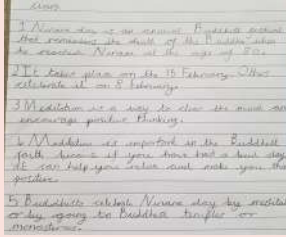 1 Nirvana day is an annual Buddhist festival
that remembers the death of the Buddha when
he reached Nirvana at the age of 80.
2 It takes place on the 15 February. Others
celebrate it on 8 February.
3 Meditation is a way to clear the mind and
encourage positive thinking.
4 Meditation is important in the Buddhist
faith because if you have had a bad day
it can help you relax and make you think
positive.
5 Buddhists celebrate Nirvana day by meditating
or by going to Buddhist temples or
monasteries.